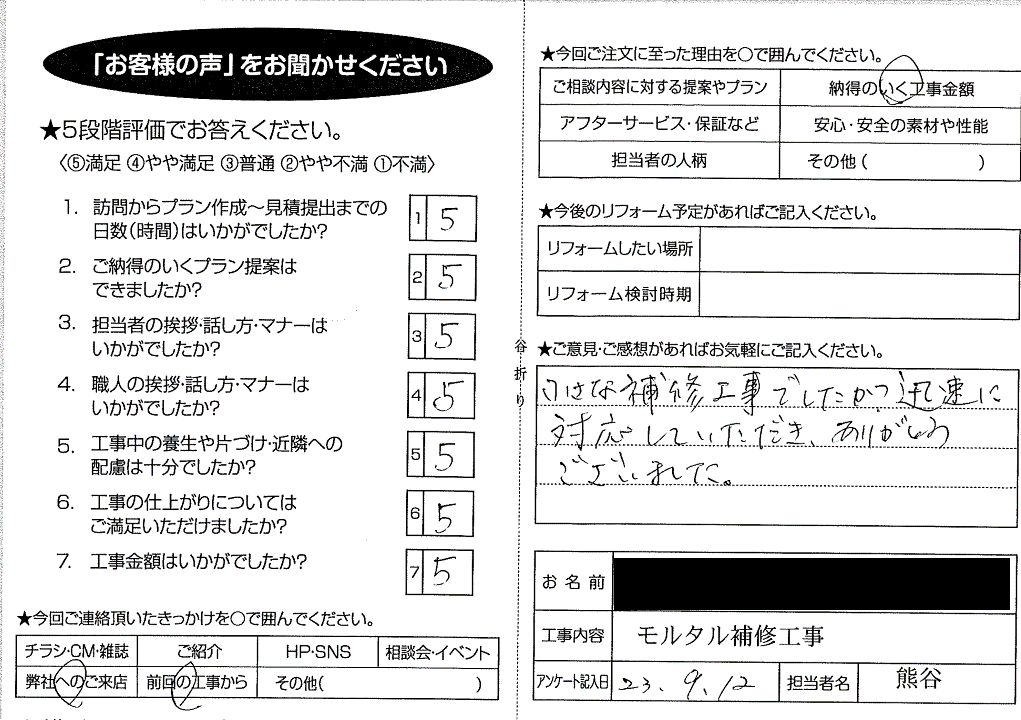 「お客様の声」をお聞かせください
★5段階評価でお答えください。
〈⑤満足 ④やや満足 ③普通 ②やや不満 ①不満〉
1. 訪問からプラン作成～見積提出までの
日数(時間)はいかがでしたか?
1 5
2. ご納得のいくプラン提案は
できましたか?
2 5
3. 担当者の挨拶・話し方・マナーは
いかがでしたか?
3 5
4. 職人の挨拶・話し方・マナーは
いかがでしたか?
4 5
5. 工事中の養生や片づけ・近隣への
配慮は十分でしたか?
5 5
6. 工事の仕上がりについては
ご満足いただけましたか?
6 5
7. 工事金額はいかがでしたか?
7 5
★今回ご連絡頂いたきっかけを〇で囲んでください。
チラシ・CM・雑誌 ご紹介 HP・SNS 相談会・イベント
弊社へのご来店 前回の工事から その他( )
谷折り
★今回ご注文に至った理由を〇で囲んでください。
ご相談内容に対する提案やプラン 納得のいく工事金額
アフターサービス・保証など 安心・安全の素材や性能
担当者の人柄 その他( )
★今後のリフォーム予定があればご記入ください。
リフォームしたい場所
リフォーム検討時期
★ご意見・ご感想があればお気軽にご記入ください。
補修工事でしたが、迅速に
対応していただき、ありがとう
ございました。
お名前
工事内容 モルタル補修工事
アンケート記入日 23. 9. 12 担当者名 熊谷